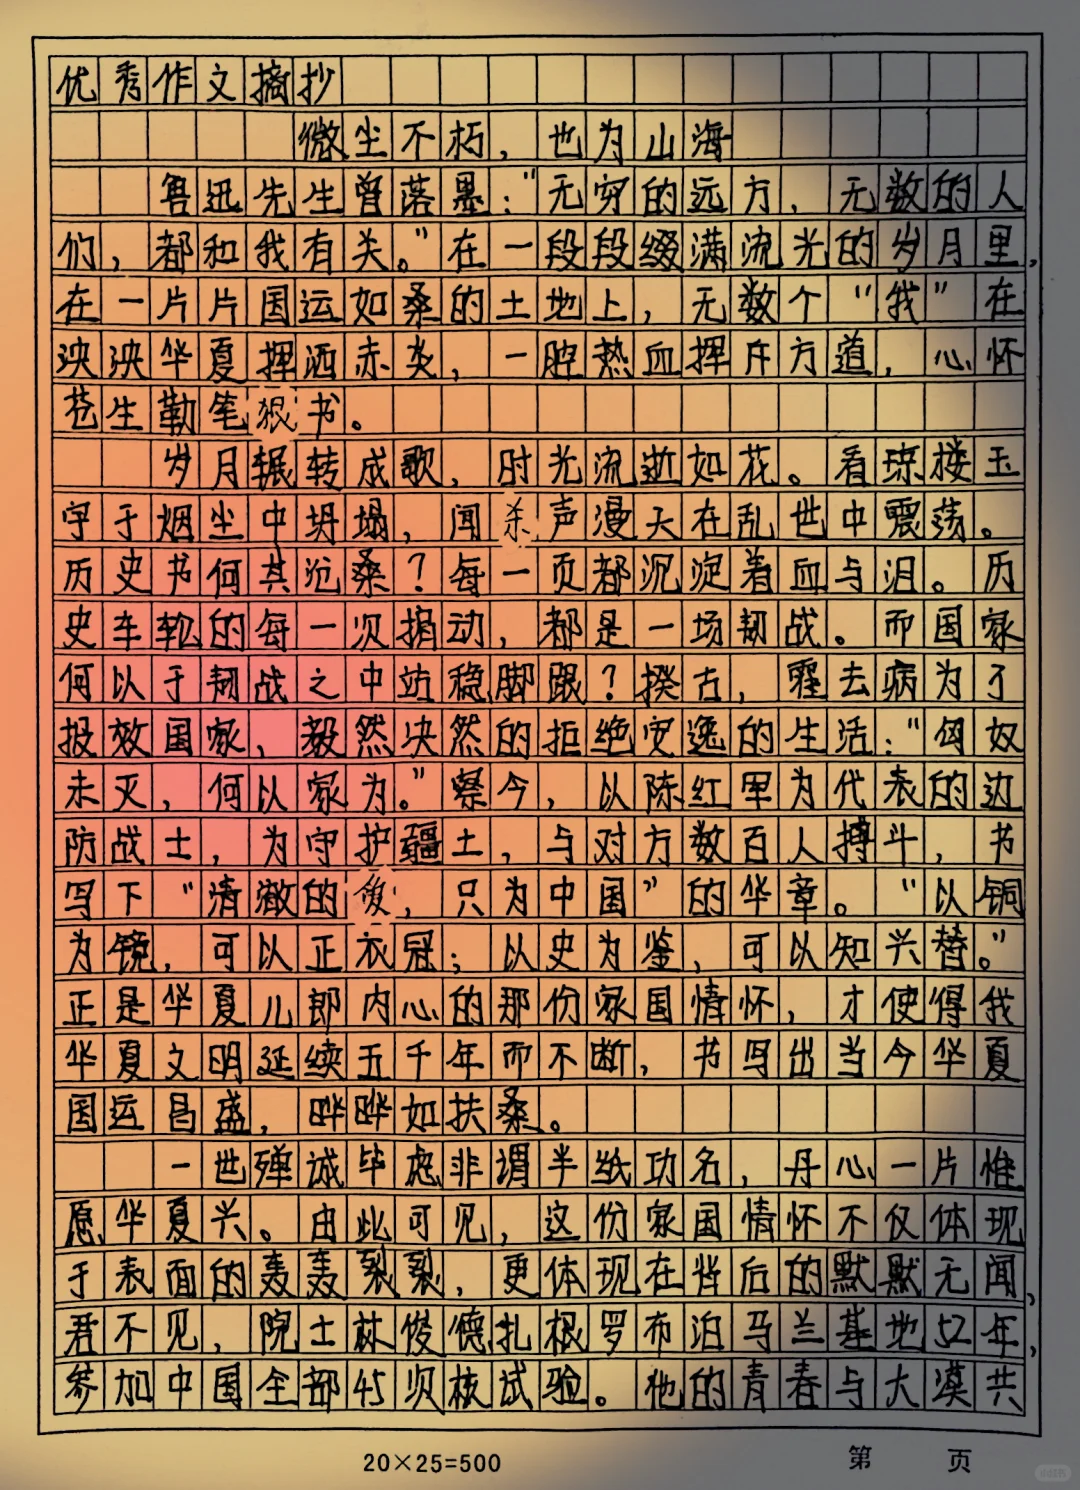 优秀作文摘抄
微尘不朽，也为山海
鲁迅先生曾落墨："无穷的远方，无数的人
们，都和我有关。"在一段段缀满流光的岁月里，
在一片片国运如桑的土地上，无数个"我"在
泱泱华夏挥洒赤炎，一腔热血挥斥方道，心怀
苍生勒笔狠书。
岁月辗转成歌，时光流逝如花。看琼楼玉
宇于烟尘中坍塌，闻杀声漫天在乱世中震荡。
历史书何其沧桑？每一页都沉淀着血与泪。历
史车轮的每一次捐动，都是一场韧战。而国家
何以于韧战之中站稳脚跟？揆古，霍去病为了
报效国家，毅然决然的拒绝安逸的生活："匈奴
未灭，何以家为。"察今，以陈红军为代表的边
防战士，为守护疆土，与对方数百人搏斗，书
写下"清澈的爱，只为中国"的华章。"以铜
为镜，可以正衣冠；以史为鉴，可以知兴替。"
正是华夏儿郎内心的那份家国情怀，才使得我
华夏文明延续五千年而不断，书写出当今华夏
国运昌盛，晔晔如扶桑。
一世殚诚毕虑非谓半纸功名，丹心一片惟
愿华夏兴。由此可见，这份家国情怀不仅体现
于表面的轰轰裂裂，更体现在背后的默默无闻，
君不见，院士林俊德扎根罗布泊马兰基地52年，
参加中国全部45次核试验。他的青春与大漠共
20×25=500 第 页